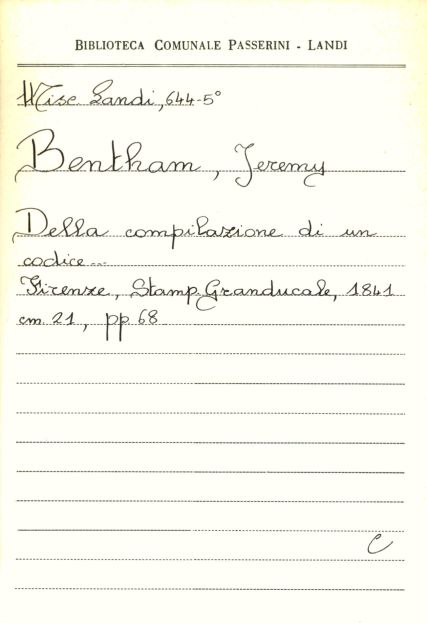 BIBLIOTECA COMUNALE PASSERINI - LANDI
Misc. Landi, 644-5°
Bentham, Jeremy
Della compilazione di un
codice...
Firenze, Stamp. Granducale, 1841
cm. 21, pp 68
C